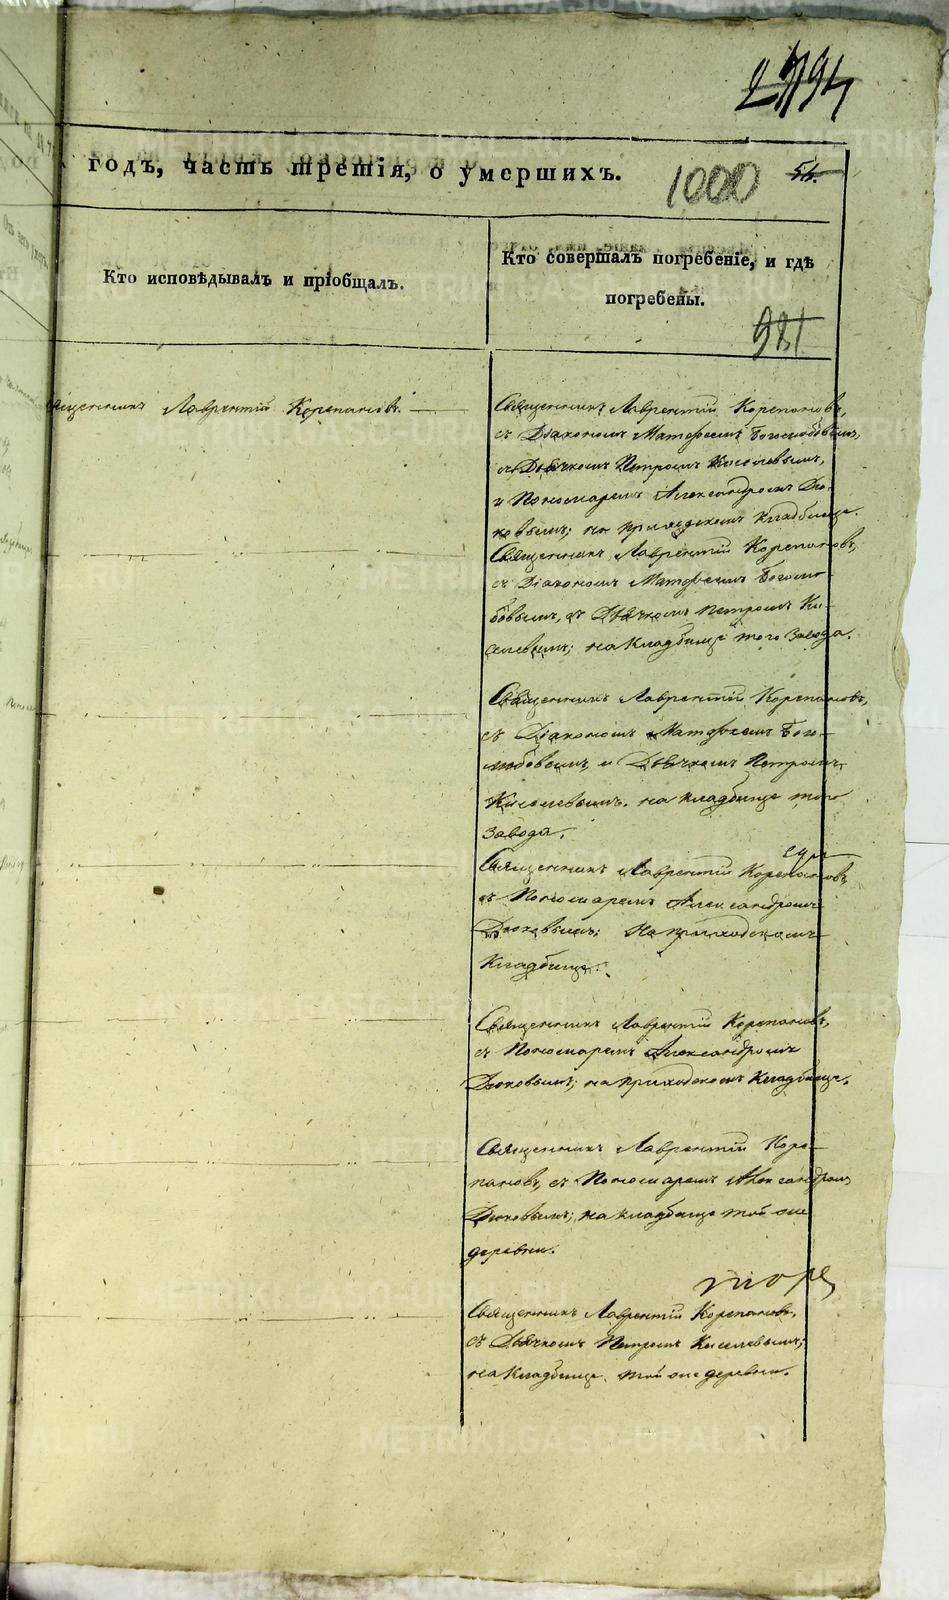 годъ, часть третія, о умершихъ.
1000
54.
Кто исповѣдывалъ и пріобщалъ.
Кто совершалъ погребеніе, и гдѣ
погребены.
981
Священникъ Лаврентій Корепановъ.
Священникъ Лаврентій Корепановъ,
съ Діакономъ Матѳеемъ Боголюбовымъ,
съ Дьячкомъ Петромъ Киселевымъ,
и Пономаремъ Александромъ Дю-
ковымъ; на приходскомъ кладбище.
Священникъ Лаврентій Корепановъ,
съ Діакономъ Матѳеемъ Боголю-
бовымъ, съ Дьячкомъ Петромъ Ки-
селевымъ; на кладбище того завода.
Священникъ Лаврентій Корепановъ,
съ Діакономъ Матѳеемъ Бого-
любовымъ, и Дьячкомъ Петромъ
Киселевымъ. на кладбище того
завода.
Священникъ Лаврентій Корепановъ,
съ Пономаремъ Александромъ
Дюковымъ; на приходскомъ
кладбище.
Священникъ Лаврентій Корепановъ,
съ Пономаремъ Александромъ
Дюковымъ; на приходскомъ кладбище.
Священникъ Лаврентій Коре-
пановъ, съ Пономаремъ Александромъ
Дюковымъ; на кладбище той же
деревни.
Священникъ Лаврентій Корепановъ,
съ Дьячкомъ Петромъ Киселевымъ;
на кладбище той же деревни.
METRIKI.GASO-URAL.RU